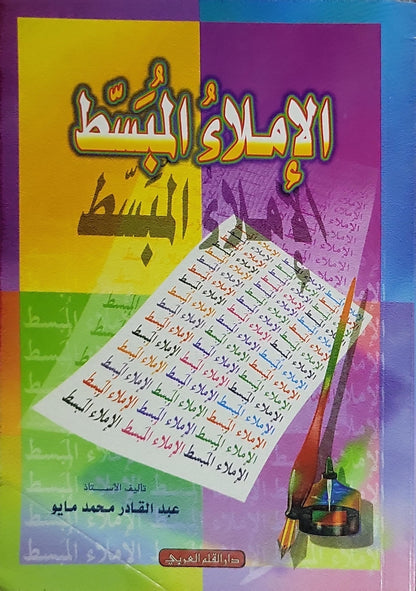 الإملاءُ المُبَسَّط
الإملاءُ المبسّط
الإملاء المبسط
تأليف الأستاذ
عبد القادر محمد مايو
دار القلم العربي